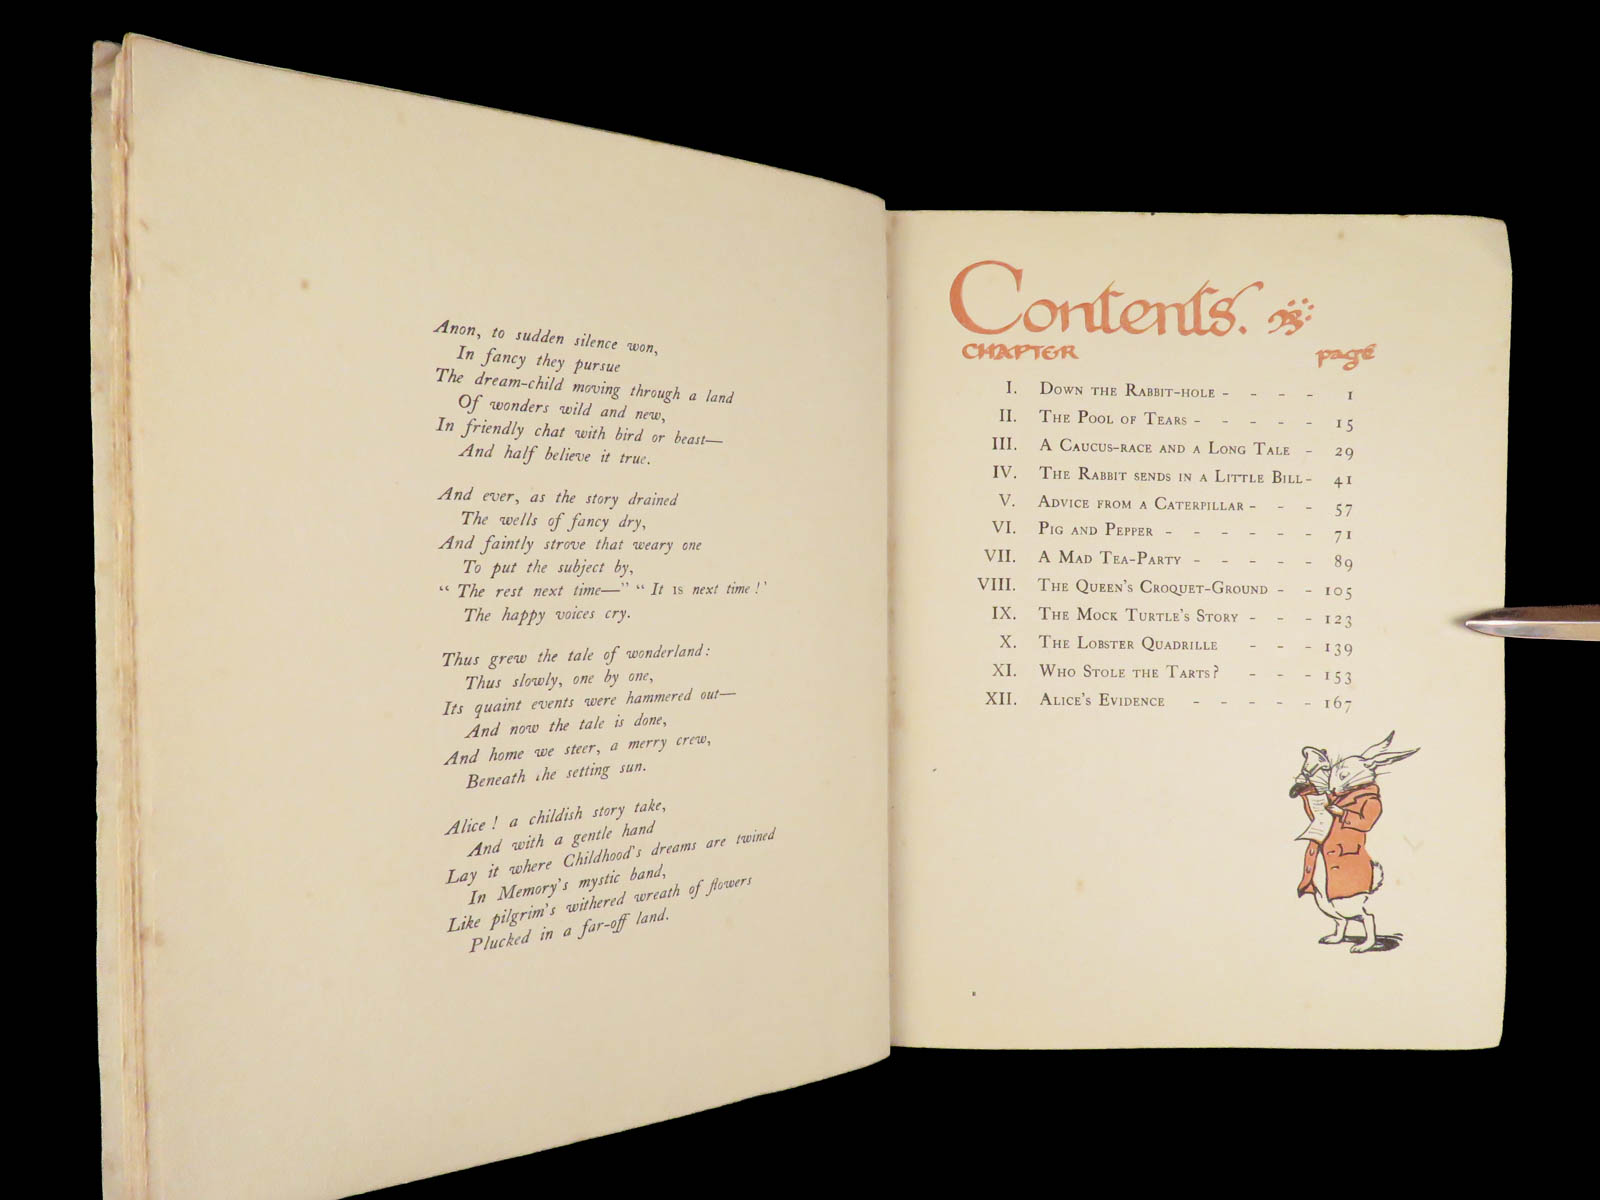 Anon, to sudden silence won,
In fancy they pursue
The dream-child moving through a land
Of wonders wild and new,
In friendly chat with bird or beast—
And half believe it true.
And ever, as the story drained
The wells of fancy dry,
And faintly strove that weary one
To put the subject by,
“ The rest next time—” “ It is next time ! ’
The happy voices cry.
Thus grew the tale of wonderland:
Thus slowly, one by one,
Its quaint events were hammered out—
And now the tale is done,
And home we steer, a merry crew,
Beneath the setting sun.
Alice ! a childish story take,
And with a gentle hand
Lay it where Childhood's dreams are twined
In Memory's mystic band,
Like pilgrim's withered wreath of flowers
Plucked in a far-off land.
Contents.
CHAPTER page
I. Down the Rabbit-hole - - - - 1
II. The Pool of Tears - - - - - 15
III. A Caucus-race and a Long Tale - 29
IV. The Rabbit sends in a Little Bill - 41
V. Advice from a Caterpillar - - - 57
VI. Pig and Pepper - - - - - - 71
VII. A Mad Tea-Party - - - - - 89
VIII. The Queen's Croquet-Ground - - 105
IX. The Mock Turtle's Story - - - 123
X. The Lobster Quadrille - - - 139
XI. Who Stole the Tarts? - - - 153
XII. Alice's Evidence - - - - - 167